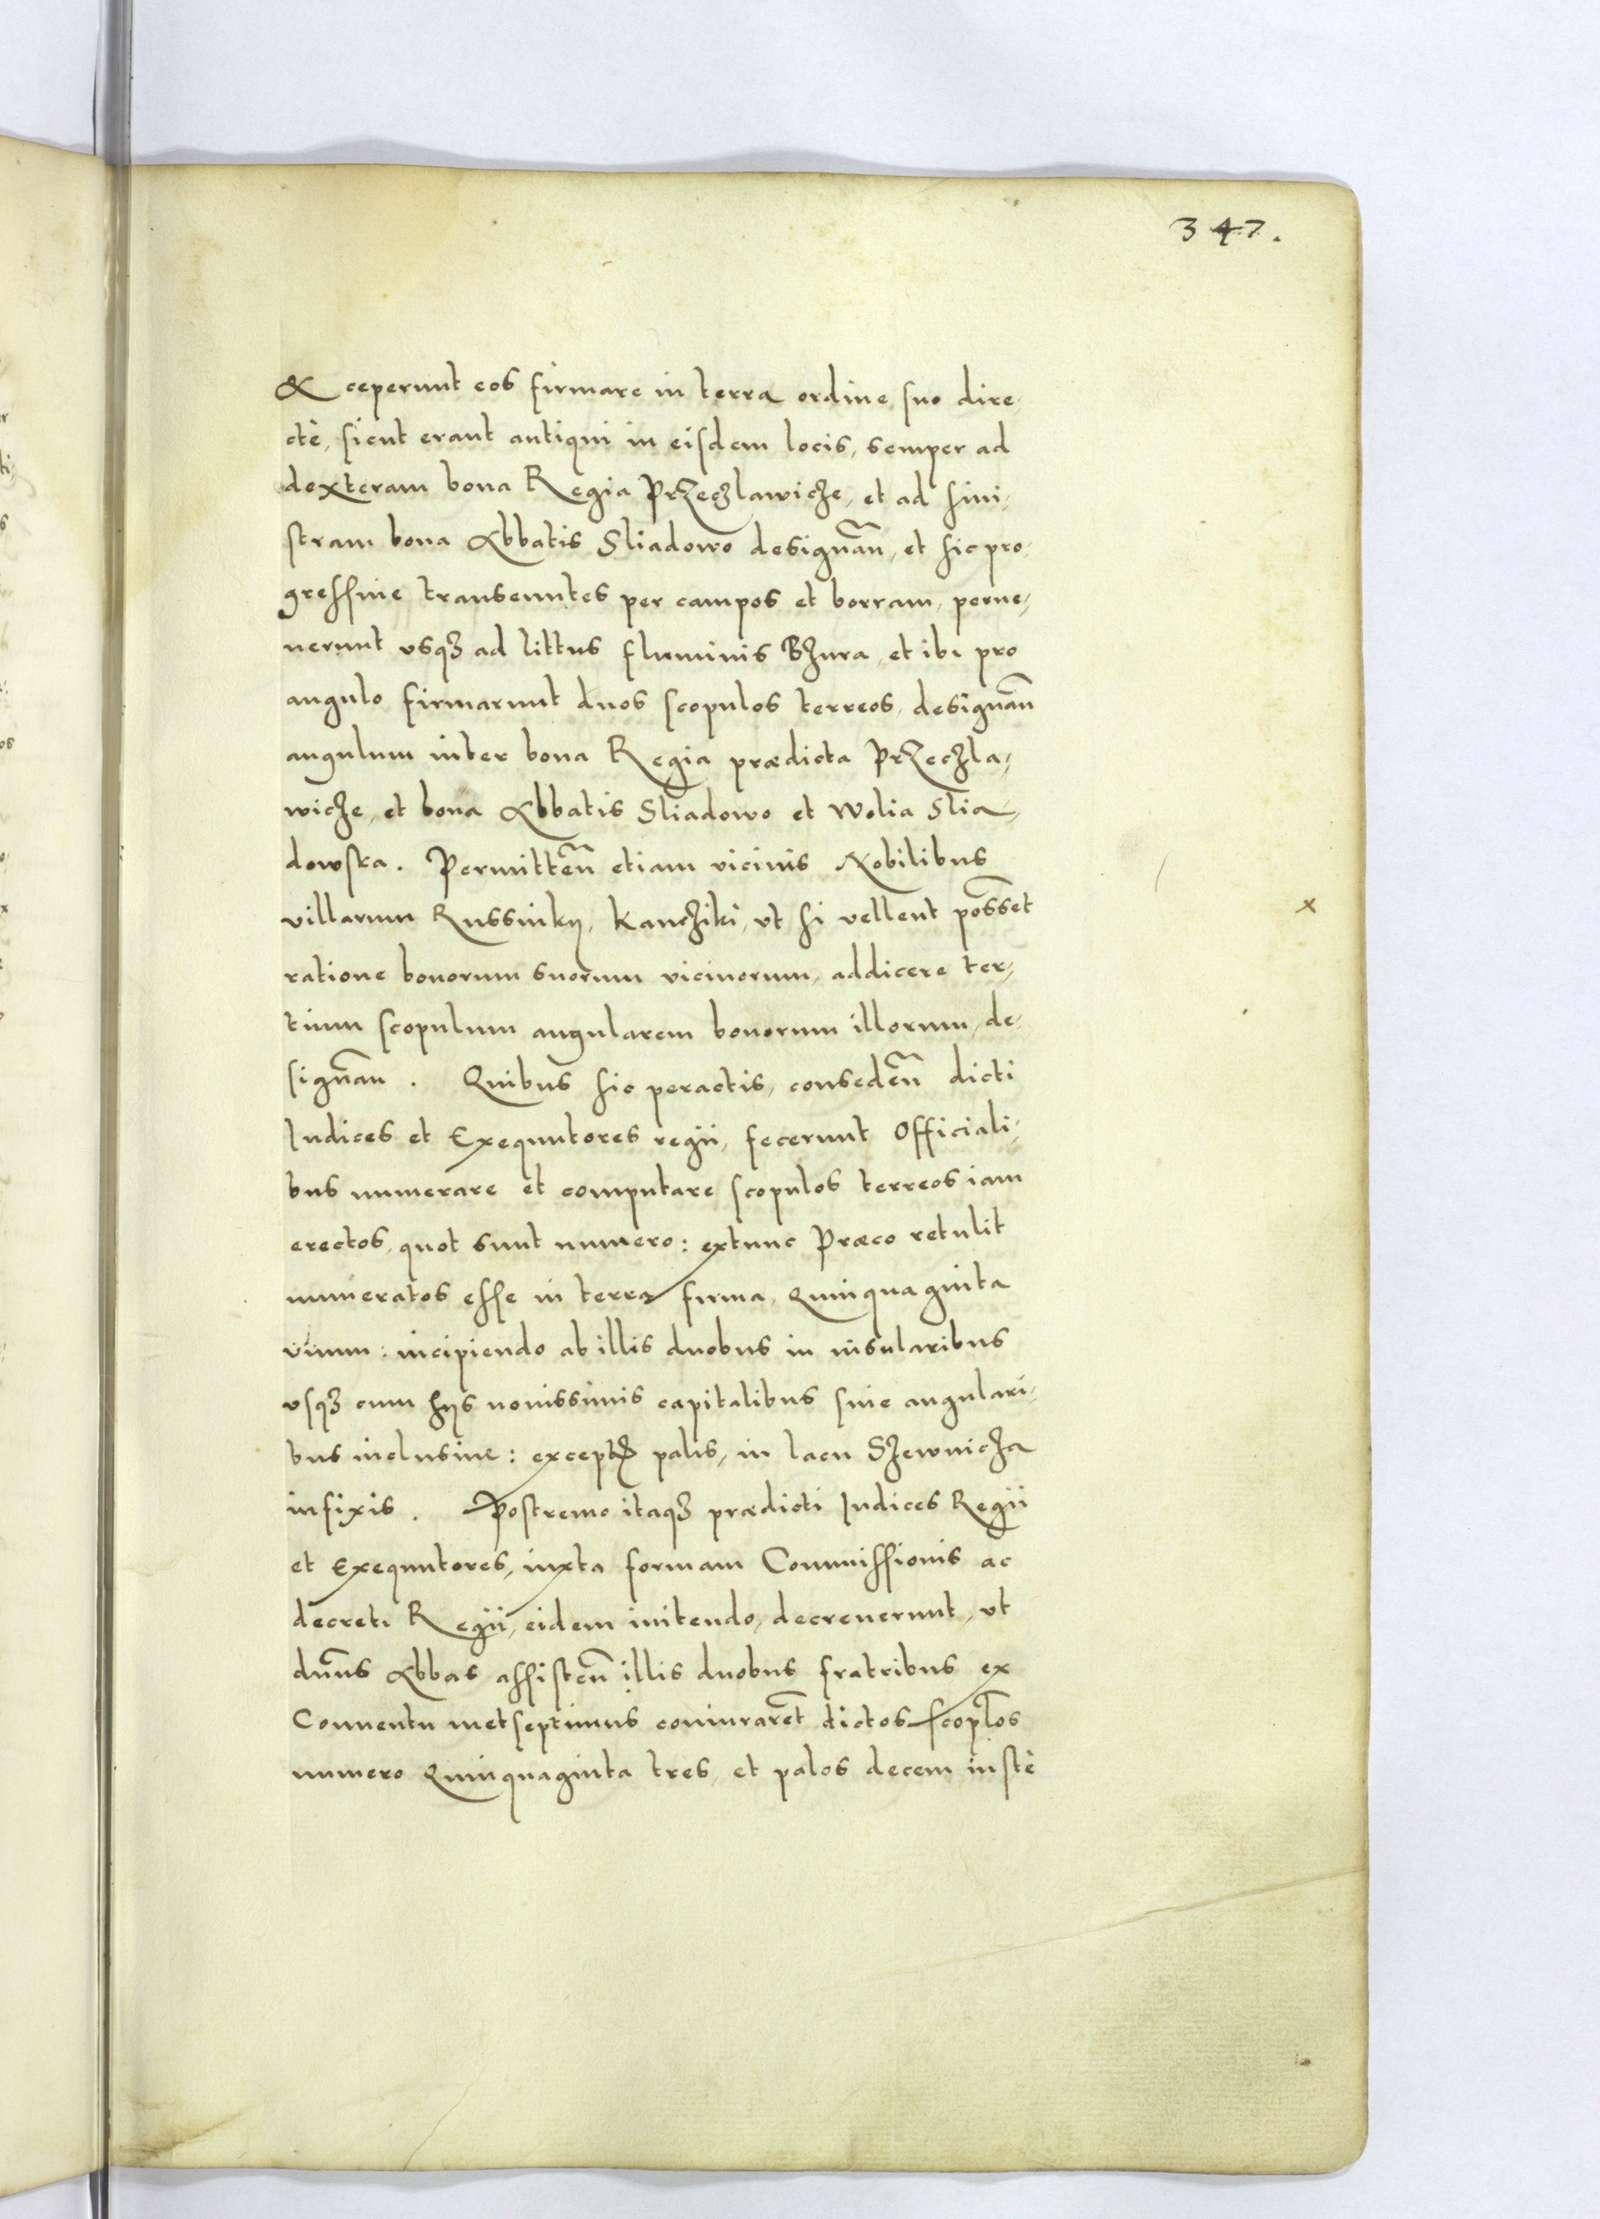 347.
& ceperunt eos firmare in terra ordine suo dire,
ctè, sicut erant antiqui in eisdem locis, semper ad
dexteram bona Regia Przeczlawicze, et ad sini,
stram bona Abbatis Sliadowo designañ, et sic pro,
gressiue transeuntes per campos et borram, perue,
nerunt vsqz ad littus fluminis Bzura, et ibi pro
angulo firmarunt duos scopulos terreos, designañ
angulum inter bona Regia prædicta Przeczla,
wicze, et bona Abbatis Sliadowo et Wolia Slia,
dowska. Permitteñ etiam vicinis Nobilibus
villarum Russinky, Kancziki, vt si vellent possēt
ratione bonorum suorum vicinorum, addicere ter,
tium scopulum angularem bonorum illorum, de,
signañ. Quibus sic peractis, consedeñ dicti
Iudices et Exequutores regii, fecerunt Officiali,
bus numerare et computare scopulos terreos iam
erectos, quot sunt numero: extunc Præco retulit
numeratos esse in terra firma, Quinquaginta
vnum: incipiendo ab illis duobus in insularibus
vsqz cum hijs nouissimis capitalibus siue angulari,
bus inclusiue: except͠ palis, in lacu Szewnicza
infixis. Postremo itaqz prædicti Iudices Regii
et Exequutores, iuxta formam Commissionis ac
decreti Regii, eidem initendo, decreuerunt, vt
dn̄us Abbas assisteñ illis duobus fratribus ex
Conuentu metseptimus coniurarēt dictos scopl̄os
numero Quinquaginta tres, et palos decem iustè
x